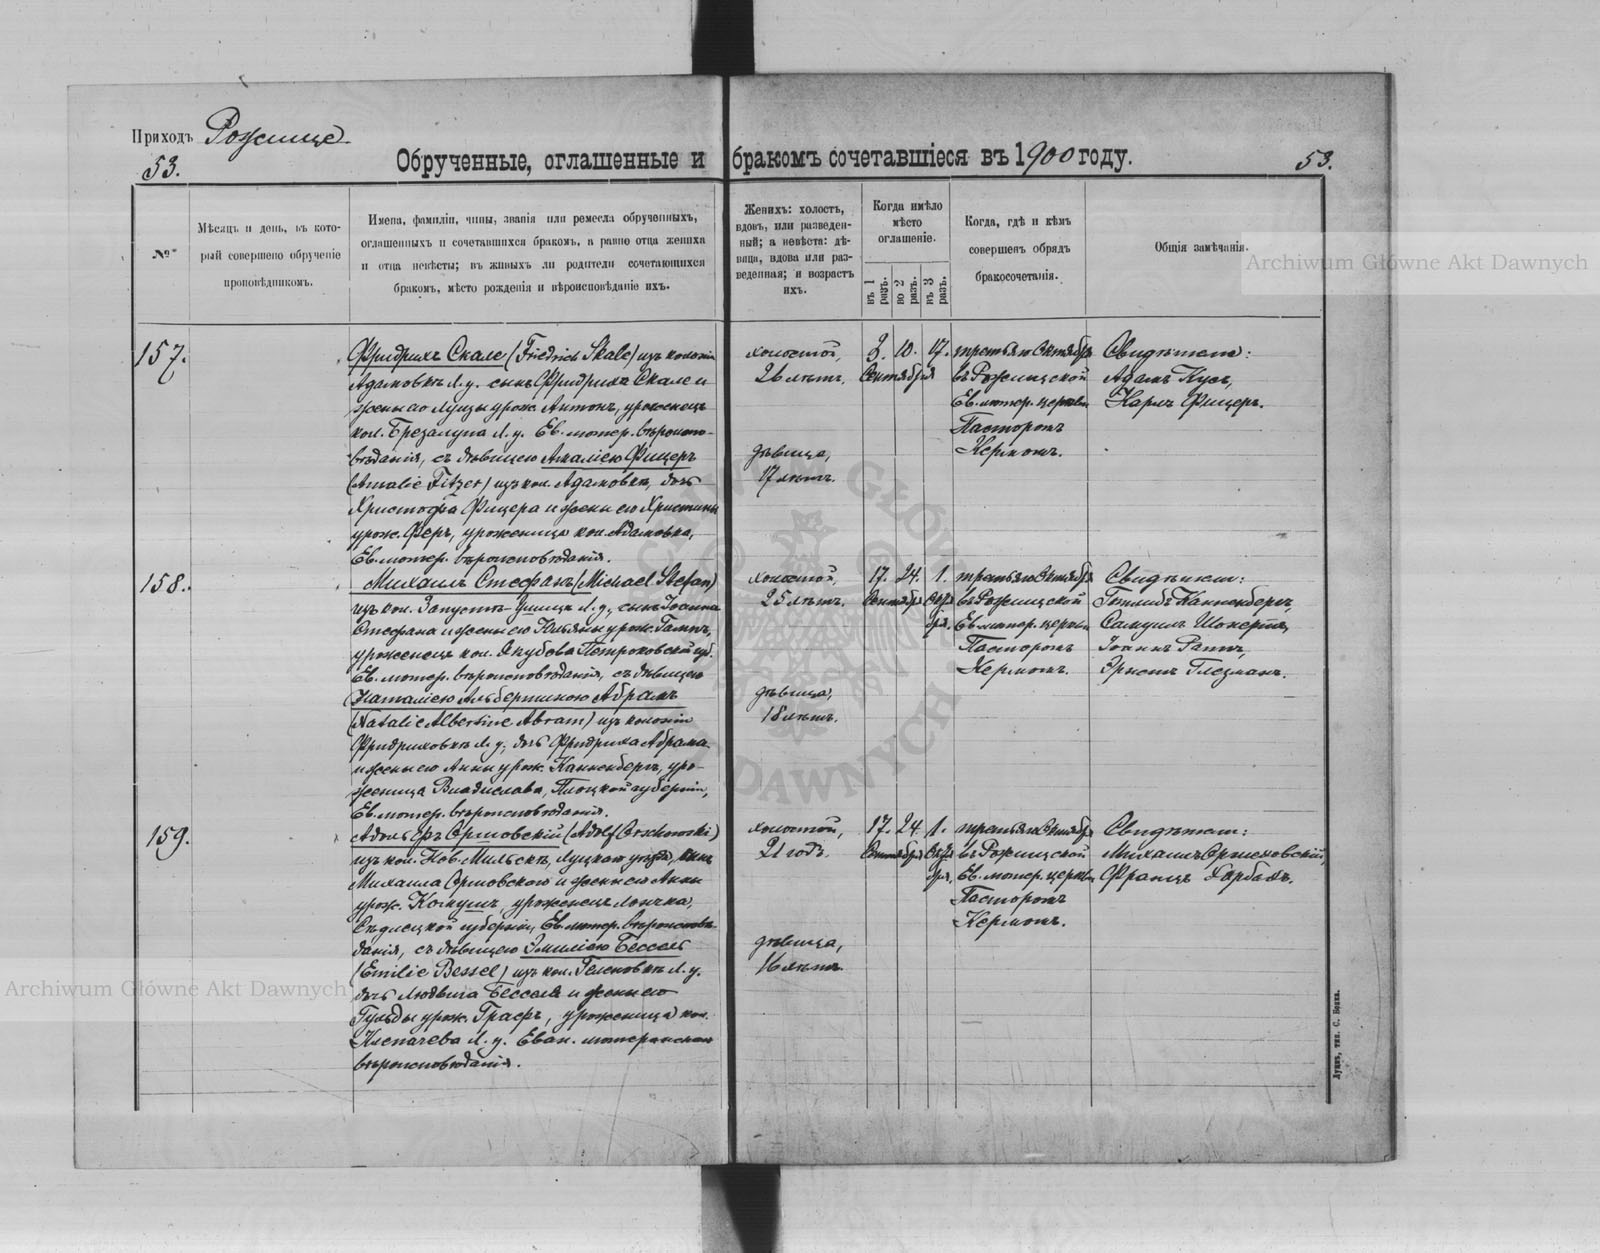 Приходъ Рожище
53.
Обрученные, оглашенные и бракомъ сочетавшіеся въ 1900 году.
53.
№
Мѣсяцъ и день, въ кото-
рый совершено обрученіе
проповѣдникомъ.
Имена, фамиліи, чины, званія или ремесла обрученныхъ,
оглашенныхъ и сочетавшихся бракомъ, а равно отца жениха
и отца невѣсты; въ живыхъ ли родители сочетающихся
бракомъ, мѣсто рожденія и вѣроисповѣданіе ихъ.
Женихъ: холостъ,
вдовъ, или разведен-
ный; а невѣста: дѣ-
вица, вдова или раз-
веденная; и возрастъ
ихъ.
Когда имѣло
мѣсто
оглашеніе.
въ 1 разъ.
во 2 разъ.
въ 3 разъ.
Когда, гдѣ и кѣмъ
совершенъ обрядъ
бракосочетанія.
Общія замѣчанія.
157.
Фридрихъ Скале (Friedrich Skale) изъ колоніи
Адамовка Л. у. сынъ Фридриха Скале и
жены его Луизы урож. Антонъ, уроженецъ
кол. Брезалупа Л. у. Ев. лютер. вѣроиспо-
вѣданія, съ дѣвицею Амаліею Фицеръ
(Amalie Fitzer) изъ кол. Адамовка, дочь
Христофа Фицера и жены его Христины
урож. Феръ, уроженица кол. Адамовка,
Ев. лютер. вѣроисповѣданія.
холостой,
26 лѣтъ.
дѣвица,
17 лѣтъ.
3. 10. 17.
Сентября
третьяго Октября
въ Рожищской
Ев. лютер. церкви
Пасторомъ
Керномъ.
Свидѣтели:
Адамъ Кусъ,
Карлъ Фицеръ.
158.
Михаилъ Стефанъ (Michael Stefan)
изъ кол. Запустъ Л. у., сынъ Іоанна
Стефана и жены его Юльяны урож. Гампъ,
уроженецъ кол. Якубова Петроковской губ.
Ев. лютер. вѣроисповѣданія, съ дѣвицею
Наталіею Альбертиною Абрамъ
(Natalie Albertine Abram) изъ колоніи
Фридриховка Л. у., дочь Фридриха Абрама
и жены его Анны урож. Канненбергъ, уро-
женица Владислава, Плоцкой губерніи,
Ев. лютер. вѣроисповѣданія.
холостой,
25 лѣтъ.
дѣвица,
18 лѣтъ.
17. 24. 1.
Сентября Октя
бря.
третьяго Октября
въ Рожищской
Ев. лютер. церкви
Пасторомъ
Керномъ.
Свидѣтели:
Готлибъ Канненбергъ,
Самуилъ Шокертъ,
Іоаннъ Раттъ,
Эрнстъ Глезманъ.
159.
Адольфъ Оршовскій (Adolf Orschowski)
изъ кол. Нов. Мильскъ, Луцкаго уѣзда, сынъ
Михаила Оршовскаго и жены его Анны
урож. уроженецъ
Сѣдлецкой губерніи, Ев. лютер. вѣроисповѣ-
данія, съ дѣвицею Эмиліею Бессель
(Emilie Bessel) изъ кол. Геленовка Л. у.
дочь Людвига Бесселя и жены его
Гульды урож. Графъ, уроженица кол.
Клепачева Л. у. Еван. лютеранскаго
вѣроисповѣданія.
холостой,
21 годъ.
дѣвица,
16 лѣтъ.
17. 24. 1.
Сентября Октя
бря.
третьяго Октября
въ Рожищской
Ев. лютер. церкви
Пасторомъ
Керномъ.
Свидѣтели:
Михаилъ Оршеховскій,
Францъ Харбахъ.
Луцкъ, тип. С. Бонка.
Archiwum Główne Akt Dawnych
Archiwum Główne Akt Dawnych
ARCHIWUM GŁÓWNE AKT DAWNYCH